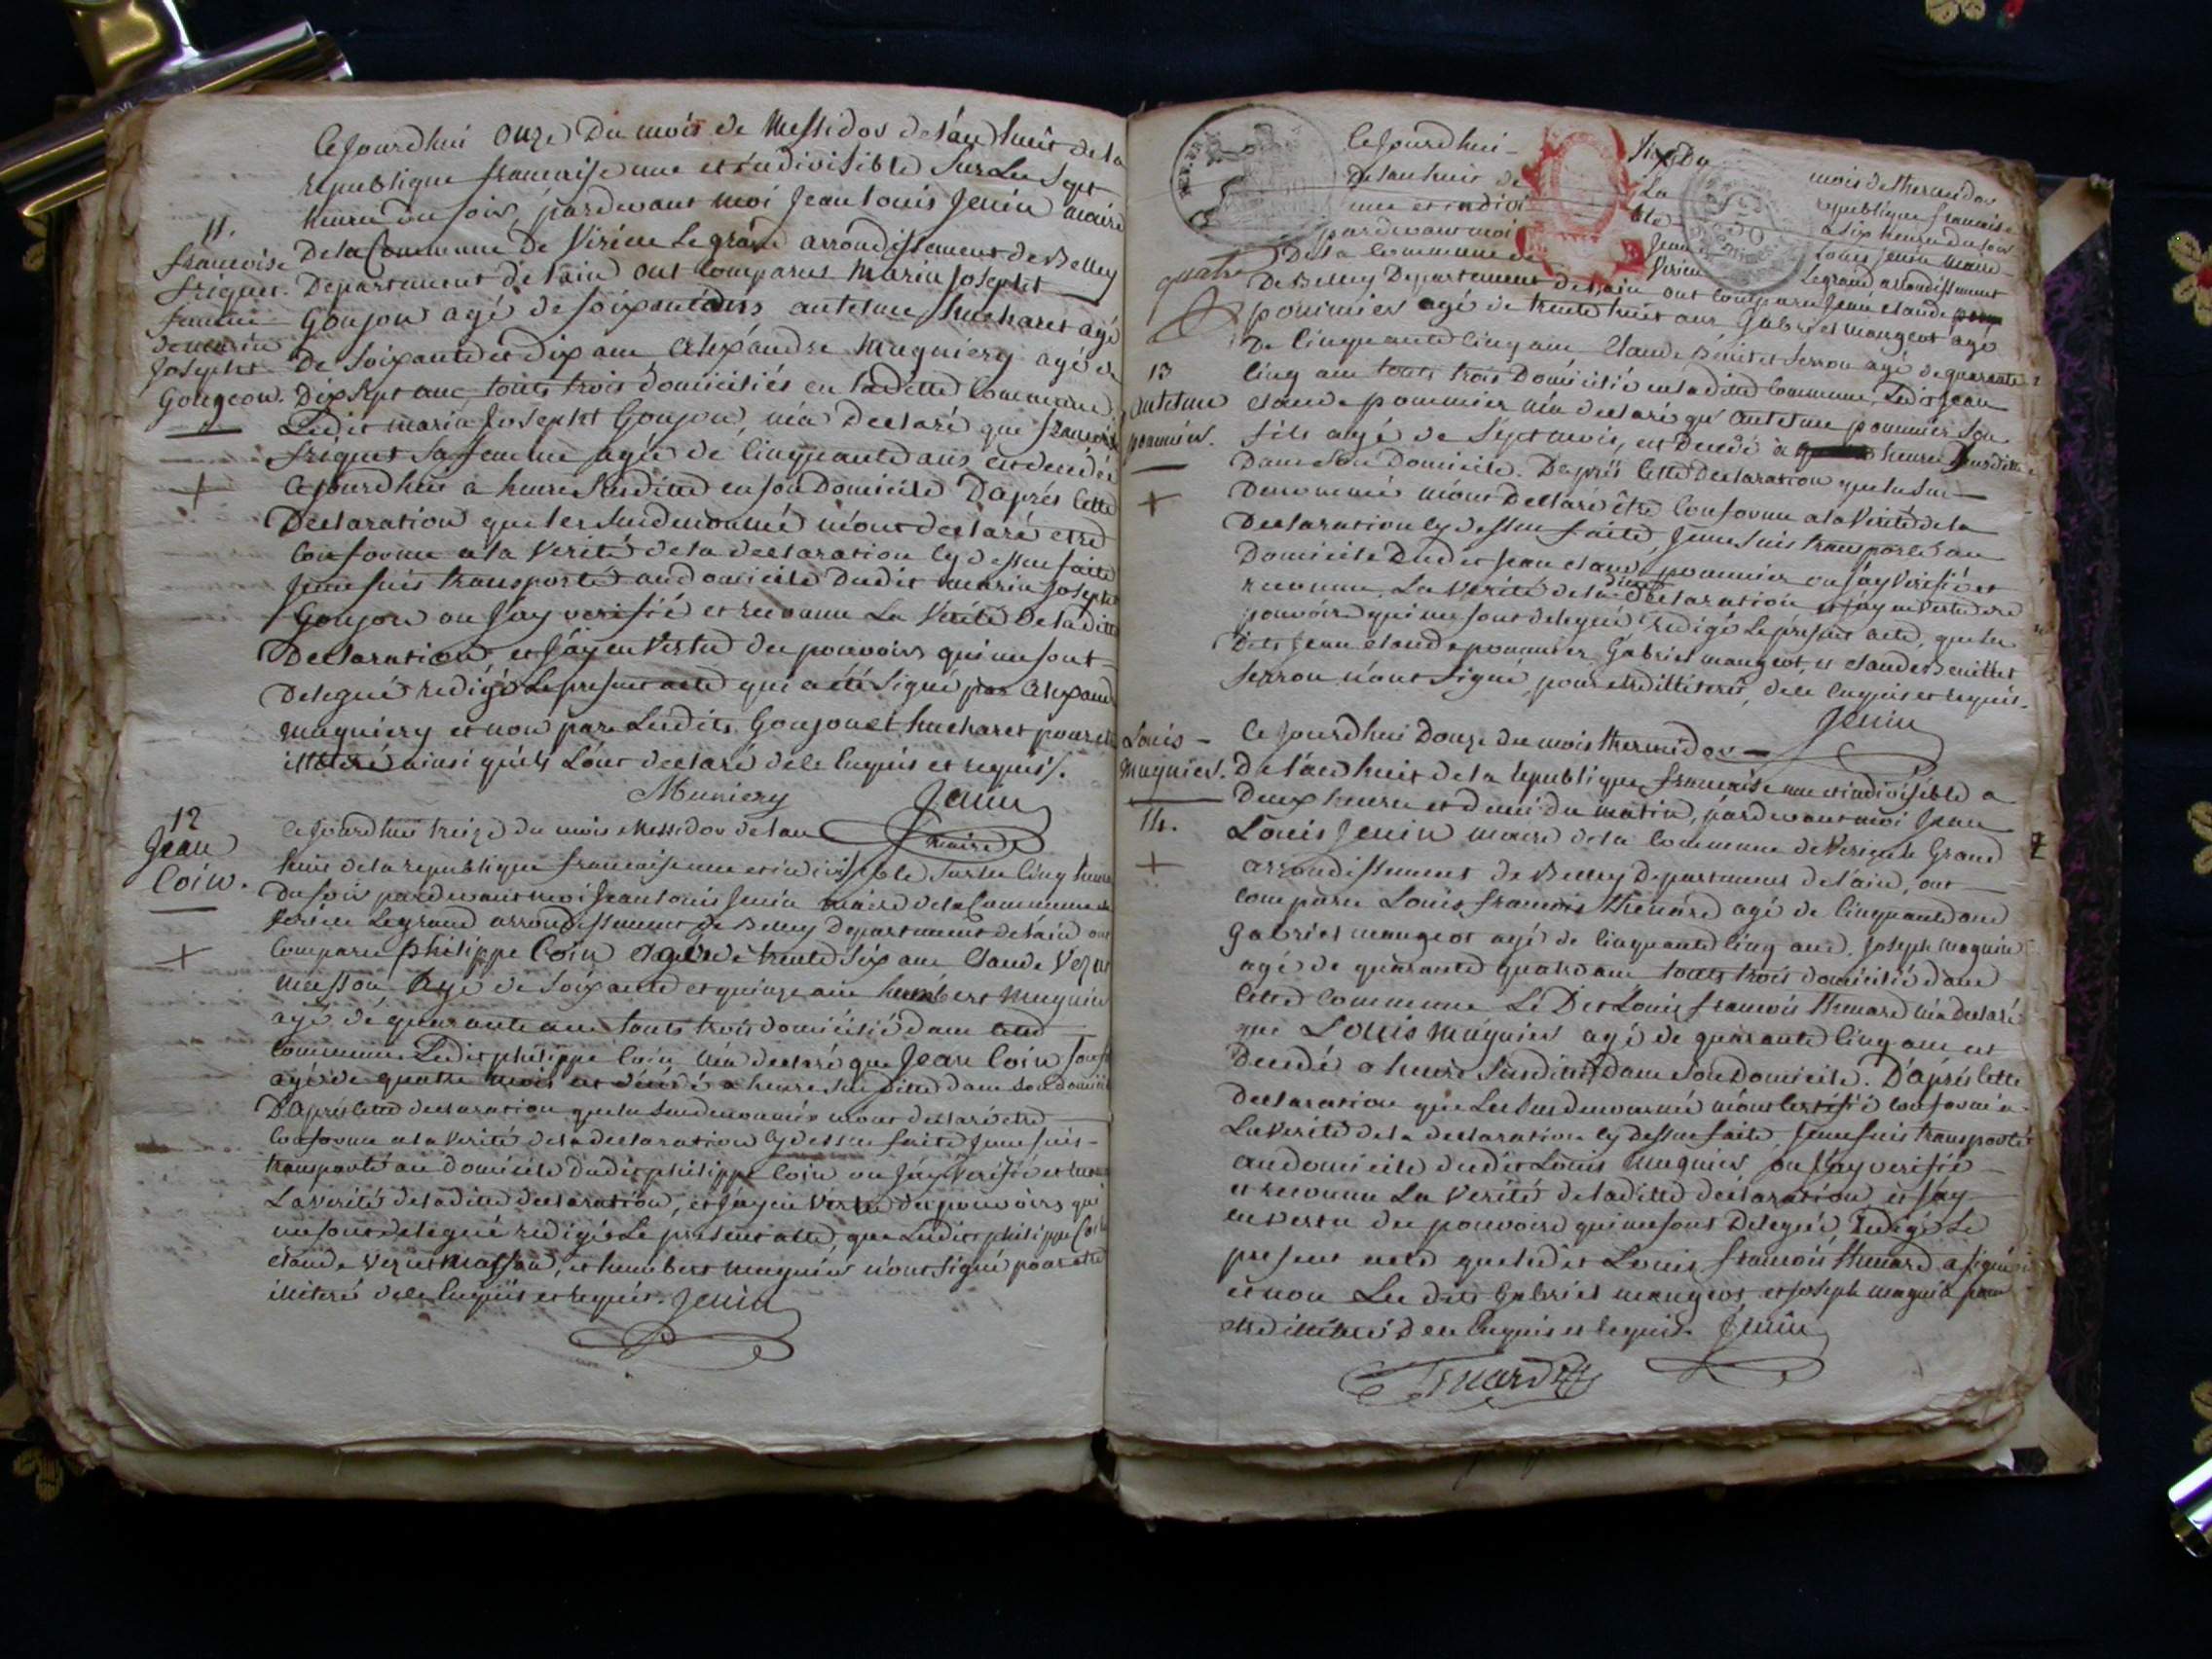 11.
françoise
friquet
femme
de marin
Josepht
Gougeon.
Cejourdhui onze Du mois de Messidor de l'an huit de la
republique francaise une et indivisible Sur Les Sept
heure du soir, pardevant moi Jean Louis Jenin maire
De la Commune De Virieu Le grand arrondissement de Belley
Departement de lain ont Comparus Marin Josepht
Goujon agé de soixante ans antelme huchard agé
De Soixante et dix ans Alexandre Magniery agé de
Dix Sept ans touts trois domiciliés en laditte Commune
Ledit marin Josepht Goujon, ma Declaré que francoise
friquet Sa femme agée de Cinquante ans est decedée
Cejourdhui a heure Susditte en son Domicile D'aprés Cette
Declaration que les Susdenommé mont declaré etre
Conforme a la Verité de la declaration Cy dessus faitte
Jeme suis transporté audomicile Dudit marin Josepht
Goujon ou Jay verifié et reconnu La Verité De laditte
Declaration, et J'ay en Vertu des pouvoirs qui me sont
Delegué redigé Le present acte qui a été Signé par Alexand
Magniery et non par Lesdits Goujon et huchard pour etre
illiteré ainsi quils Lont declaré dele Enquis et requis.
Muniery Jenin
maire
12
Jean
Coin.
Cejourdhui treize du mois Messidor de lan
huit de la republique francaise une et indivisible Sur les Cinq heure
Du soir pardevant moi Jean Louis Jenin maire de la Commune de
Virieu Le grand arrondissement de Belley Departement de lain ont
Comparu philippe Coin agé de trente Six ans Claude Vezu
Masson Agé de Soixante et quinze ans humbert Magnin
agé de quarante ans touts trois domicilié dans cette
Commune Ledit philippe Coin ma declaré que Jean Coin Son fils
agé de quatre mois est décédé a heure Susditte dans son domicile
D'aprés Cette declaration que les Susdenommés mont declaré etre
Conforme a la Verité de la declaration Cy dessus faite Jeme suis
transporté au domicile dudit philippe Coin ou J'ay Verifié et reconnu
La Verité de laditte declaration, et J'ay en Vertu des pouvoirs qui
me sont delegué redigé Le present acte que Ledit philippe Coin
Claude Vezu Masson, et humbert Magnin n'ont Signé pour etre
illiteré dele Enquis et requis. Jenin
quatre
13
antelme
pommier.
Cejourdhui Six Du mois de thermidor
De lan huit de La republique francaise
une et indivisible a Six heure du soir
pardevant moi Jean Louis Jenin maire
De la Commune de Virieu Legrand arrondissement
De Belley Departement De lain ont Comparu Jean Claude
pommier agé de trente huit ans Gabriel mangeot agé
De Cinquante Cinq ans Claude Benoit Serrou agé de quarante
Cinq ans touts trois Domicilié en laditte Commune, Ledit Jean
Claude pommier m'a declaré qu' Antelme pommier Son
fils agé de Sept mois, est Decedé a heure Susditte
Dans Son Domicile. D'aprés Cette Declaration que les Sus
Denommé m'ont Declaré être Conforme a la Verité de la
Declaration Cy dessus faite, Jeme Suis transporté au
Domicile Dudit Jean Claude pommier ou J'ay Verifié et
reconnu La Verité de la ditte declaration et J'ay en Vertu des
pouvoirs qui me sont delegué redigé Le present acte, que les
Dits Jean Claude pommier Gabriel mangeot et Claude Benoit
Serrou n'ont Signé, pour etre illiteré, dele Enquis et requis.
Jenin
Louis
Magnier.
14.
Cejourdhui Douze du mois thermidor
De l'an huit de la republique francaise une et indivisible a
Deux heures et demi du matin, pardevant moi Jean
Louis Jenin maire de la Commune de Virieu le Grand
arrondissement de Belley Departement de l'ain, ont
Comparu Louis francois thenard agé de Cinquante ans
Gabriel mangeot agé de Cinquante Cinq ans. Joseph magnin
agé de quarante quatre ans touts trois domicilié dans
Cette Commune Le Dit Louis francois thenard m'a declaré
que Louis Magnier agé de quarante Cinq ans est
Decedé a heure Susditte dans Son Domicile. D'aprés Cette
Declaration que Les Susdenommé m'ont Certifié Conforme a
La Verité de la declaration Cy Dessus faite, Jeme suis transporté
au domicile dudit Louis Magnier, ou J'ay verifié
et reconnu La Verité de laditte declaration et J'ay
en vertu des pouvoirs qui me sont Delegué, redigé Le
present acte que ledit Louis francois thenard a signé
et non Les dits Gabriel mangeot et Joseph magnin pour
etre illiteré Dele Enquis et requis. Jenin
Tenard